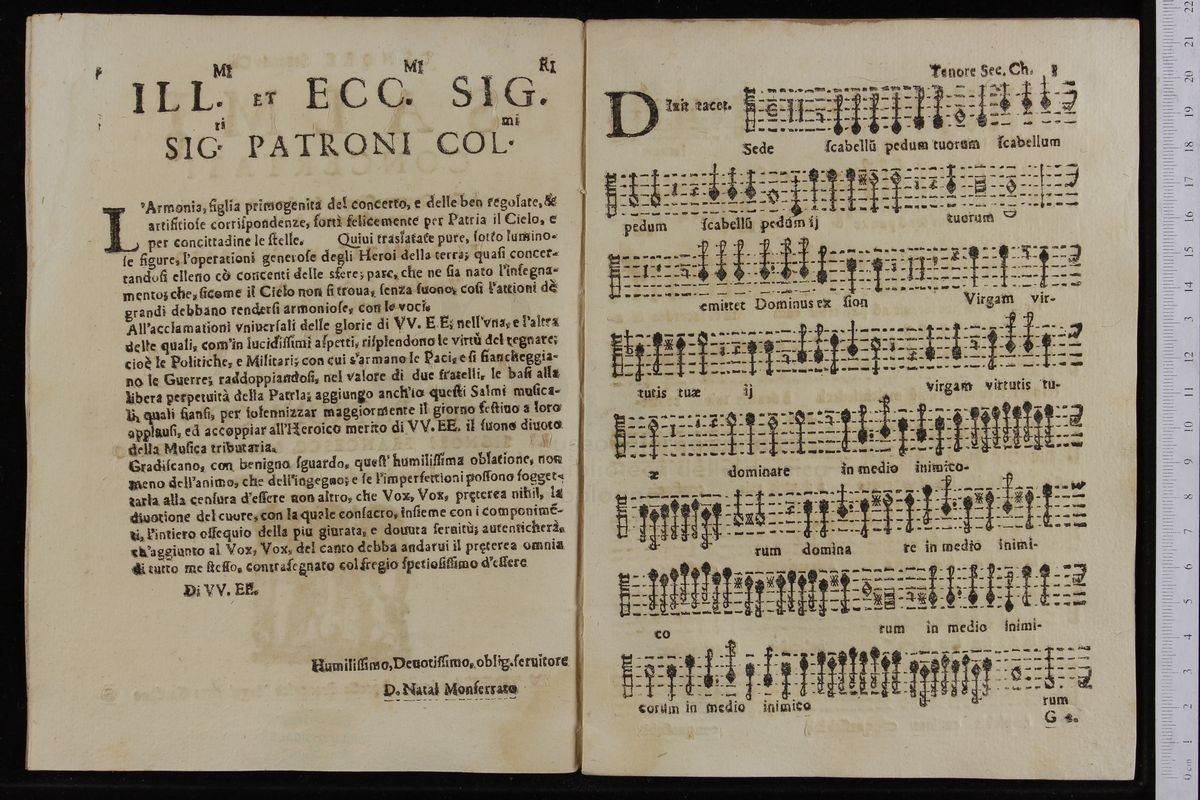 ILL.MI ET ECC.MI SIG.RI
SIG.ri PATRONI COL.mi
L'Armonia, figlia primogenita del concerto, e delle ben regolate, &
artifitiose corrispondenze, sortì felicemente per Patria il Cielo, e
per concittadine le stelle. Quiui traslatate pure, sotto lumino-
se figure, l'operationi generose degli Heroi della terra; quasi concer-
tandosi elleno cō concenti delle sfere; pare, che ne sia nato l'insegna-
mento; che, sicome il Cielo non si troua, senza suono, così l'attioni dè
grandi debbano rendersi armoniose, con le voci.
All'acclamationi vniuersali delle glorie di VV. EE; nell'vna, e l'altra
delle quali, com'in lucidissimi aspetti, risplendono le virtù del regnare;
cioè le Politiche, e Militari; con cui s'armano le Paci, e si fiancheggia-
no le Guerre; raddoppiandosi, nel valore di due fratelli, le basi alla
libera perpetuità della Patria; aggiungo anch'io questi Salmi musica-
li, quali sianſi, per solennizzar maggiormente il giorno festiuo a loro
applausi, ed accoppiar all'Heroico merito di VV. EE. il suono diuoto
della Musica tributaria.
Gradiscano, con benigno sguardo, quest' humilissima oblatione, non
meno dell'animo, che dell'ingegno; e se l'imperfettioni possono sogget-
tarla alla censura d'essere non altro, che Vox, Vox, pręterea nihil, la
diuotione del cuore, con la quale consacro, insieme con i componimē-
ti, l'intiero ossequio della più giurata, e douuta seruitù; autenticherà,
ch'aggiunto al Vox, Vox, del canto debba andarui il pręterea omnia
di tutto me stesso, contrasegnato col fregio spetiosissimo d'essere
Di VV. EE.
Humilissimo, Deuotissimo, oblig. seruitore
D. Natal Monferrato
Tenore Sec. Ch.
DIxit tacet.
Sede scabellū pedum tuorum scabellum
pedum scabellū pedum ij tuorum
emittet Dominus ex sion Virgam vir-
tutis tuæ ij virgam virtutis tu-
æ dominare in medio inimico-
rum domina re in medio inimi-
co rum in medio inimi-
corum in medio inimico rum
G 2.